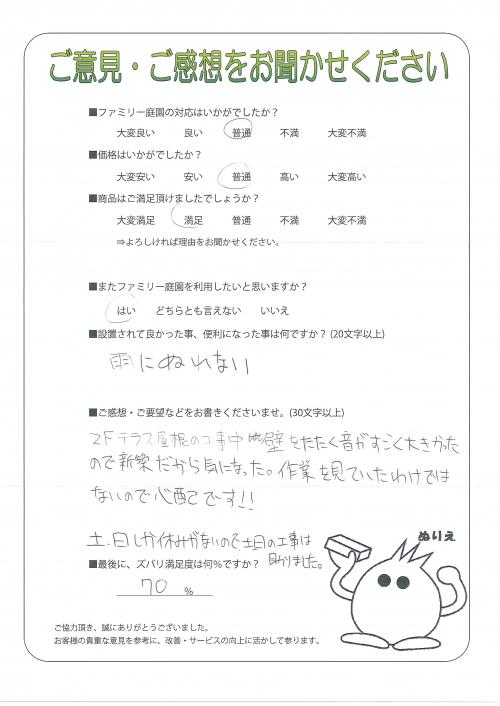 ご意見・ご感想をお聞かせください
■ファミリー庭園の対応はいかがでしたか？
大変良い 良い 普通 不満 大変不満
■価格はいかがでしたか？
大変安い 安い 普通 高い 大変高い
■商品はご満足頂けましたでしょうか？
大変満足 満足 普通 不満 大変不満
⇒よろしければ理由をお聞かせください。
■またファミリー庭園を利用したいと思いますか？
はい どちらとも言えない いいえ
■設置されて良かった事、便利になった事は何ですか？(20文字以上)
雨にぬれない
■ご感想・ご要望などをお書きくださいませ。(30文字以上)
2Fテラス屋根の工事中 壁をたたく音がすごく大きかった
ので新築だから気になった。作業を見ていたわけでは
ないので心配です!!
土.日しか休みがないので土日の工事は
助りました。
■最後に、ズバリ満足度は何%ですか？
70 %
ぬりえ
ご協力頂き、誠にありがとうございました。
お客様の貴重な意見を参考に、改善・サービスの向上に活かして参ります。